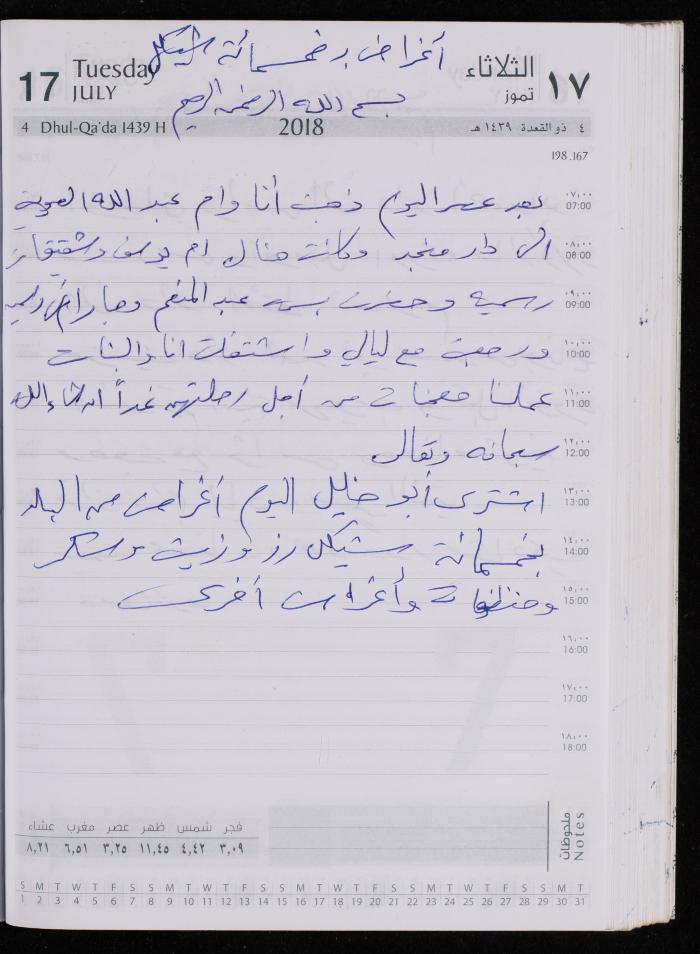 أغراض بخمسمائة شيكل
17 Tuesday JULY الثلاثاء تموز ١٧
بسم الله الرحمن الرحيم
4 Dhul-Qa'da 1439 H 2018 ٤ ذو القعدة ١٤٣٩ هـ
198.167
٠٧,٠٠ 07:00 بعد عصر اليوم ذهبت أنا وام عبد الله
٠٨,٠٠ 08:00 الى دار منجد وكانت هناك ام يوسف
٠٩,٠٠ 09:00 رسمية وحضرت بسمه عبد المنعم
١٠,٠٠ 10:00 ورجعت مع ليالي واشتغلت انا والبنات
١١,٠٠ 11:00 عملنا معجنات من أجل رحلتهن غداً ان شاء الله
١٢,٠٠ 12:00 سبحانه وتعالى
١٣,٠٠ 13:00 اشترى أبو خليل اليوم أغراض من البلد
١٤,٠٠ 14:00 بخمسمائة شيكل رز وزيت وسكر
١٥,٠٠ 15:00 ومنظفات وأغراض أخرى
١٦,٠٠ 16:00
١٧,٠٠ 17:00
١٨,٠٠ 18:00
ملحوظات Notes
فجر شمس ظهر عصر مغرب عشاء
٣,٠٩ ٤,٤٢ ١١,٤٥ ٣,٢٥ ٦,٥١ ٨,٢١
S M T W T F S S M T W T F S S M T W T F S S M T W T F S S M T
1 2 3 4 5 6 7 8 9 10 11 12 13 14 15 16 17 18 19 20 21 22 23 24 25 26 27 28 29 30 31